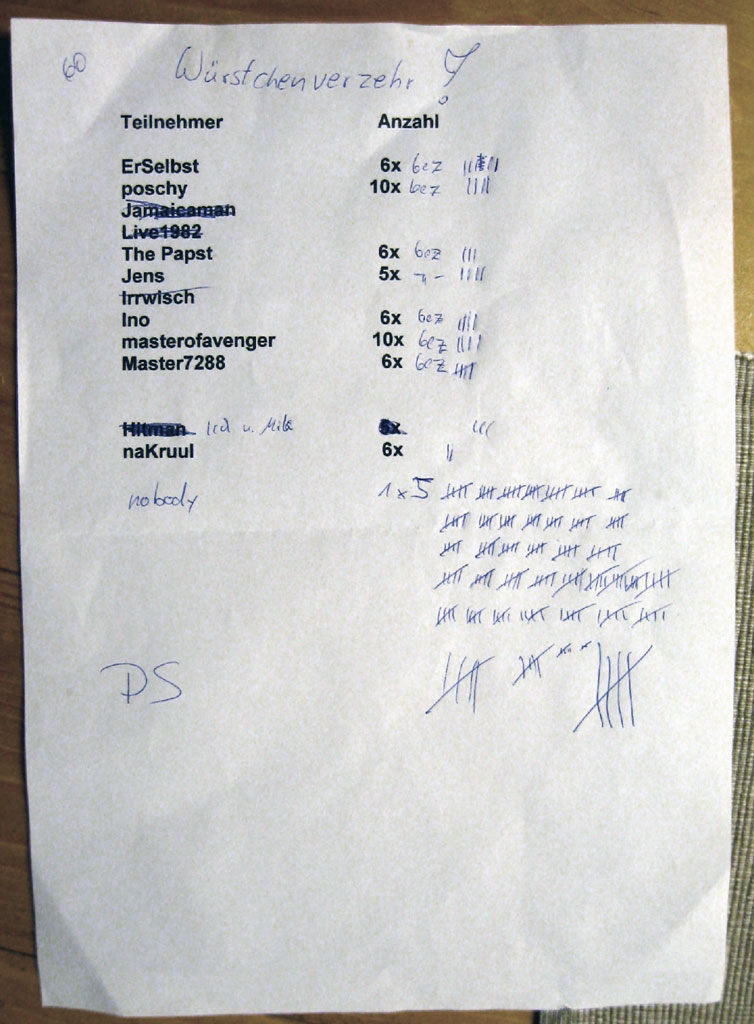 60 Würstchenverzehr !
Teilnehmer Anzahl
ErSelbst 6x bez
poschy 10x bez
Jamaicaman
Live1982
The Papst 6x bez
Jens 5x
Irrwisch
Ino 6x bez
masterofavenger 10x bez
Master7288 6x bez
Hitman u.
naKruul 6x
nobody 1x5
DS